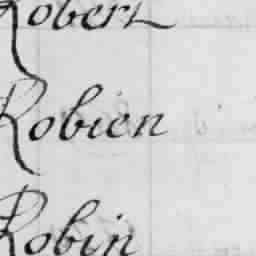 Robert
Robien
Robin